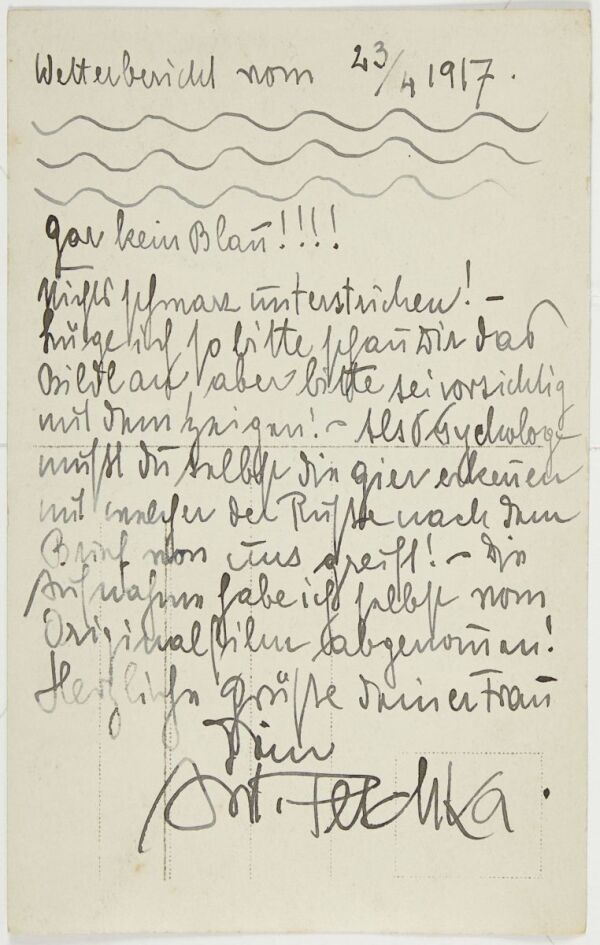 Wetterbericht vom 23/4 1917.
gar kein Blau!!!!
Nichts schwarz unterstrichen! –
so bitte schau Dir das
Bildl an aber bitte sei vorsichtig
mit dem zeigen! – Als Psychologe
mußt du selbst die gier erkennen
mit welcher der Russe nach dem
Brief von uns greift! – Die
Aufnahme habe ich selbst vom
Originalfilm abgenom̅en!
Herzliche Grüße deiner Frau
Dein
Ant. Peschka.